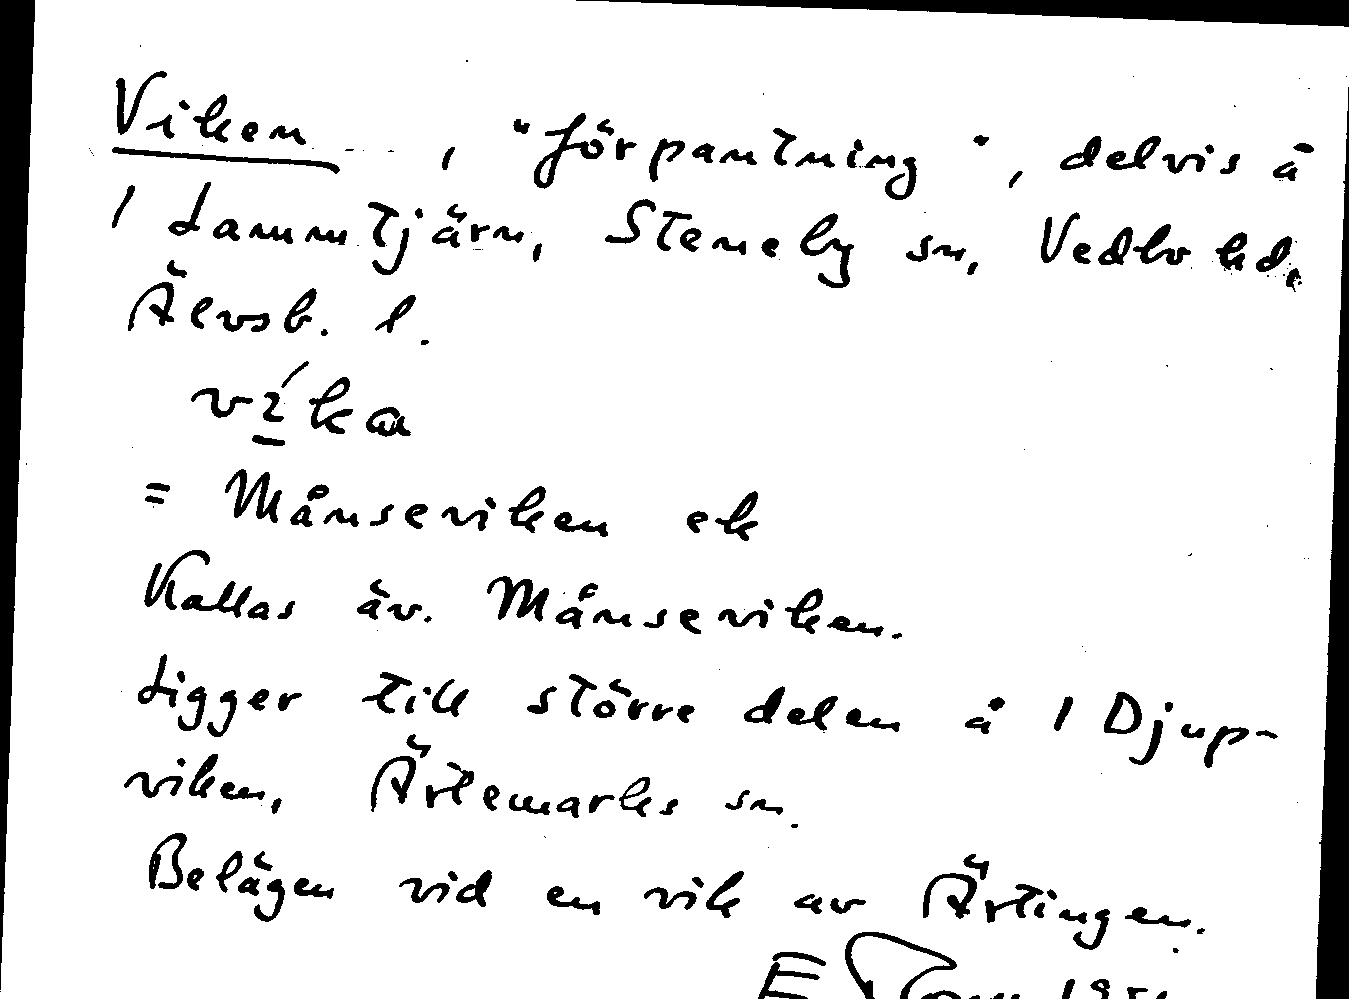 Viken, "förpantning", delvis å
1 Lammtjärn, Steneby sn, Vedbo hd.
Älvsb. l.
= Månseviken ek
Kallas äv. Månseviken.
Ligger till större delen å 1 Djup-
viken, Ärtemarks sn.
Belägen vid en vik av Ärtingen.
E